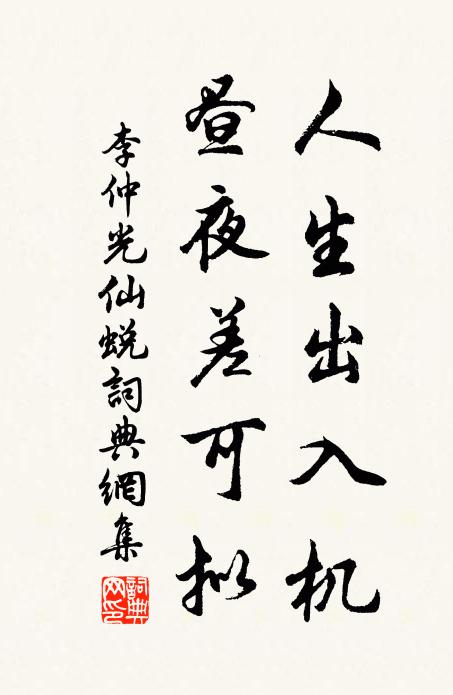 人生出入机
昼夜差可拟
李仲光仙蜕詞典網集
詞典网印